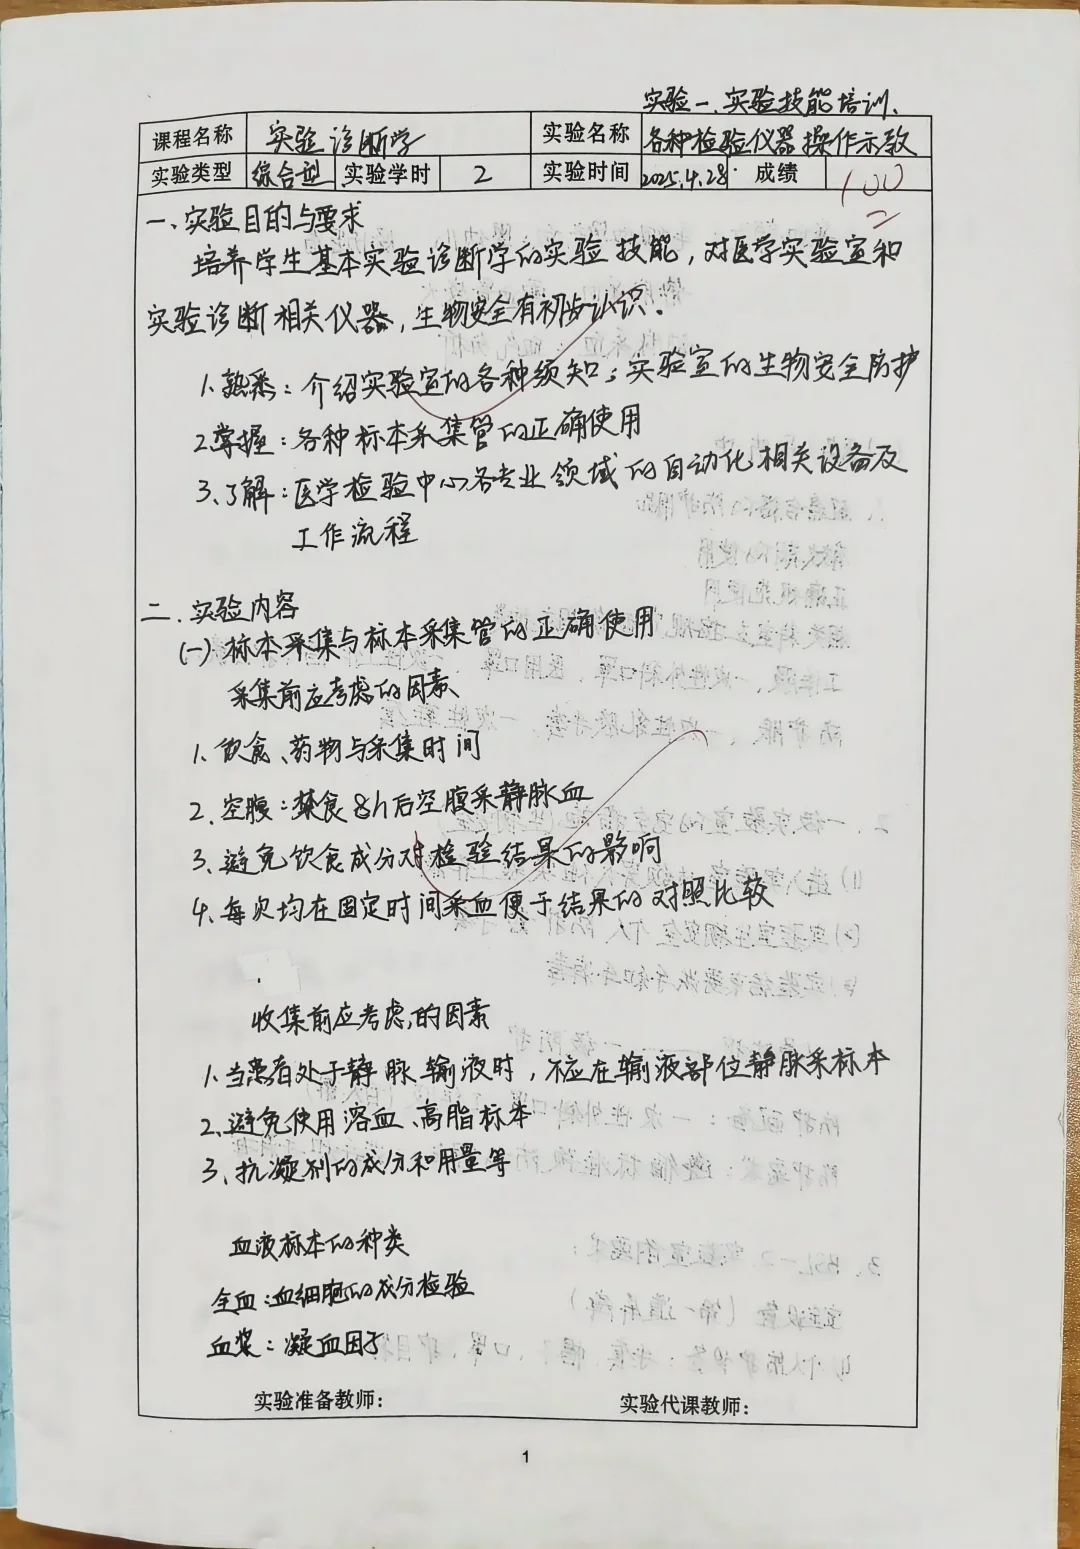 实验一.实验技能培训、
课程名称 实验诊断学 实验名称 各种检验仪器操作示教
实验类型 综合型 实验学时 2 实验时间 2025.4.28. 成绩 100
一、实验目的与要求
培养学生基本实验诊断学的实验技能,对医学实验室和
实验诊断相关仪器,生物安全有初步认识.
1.熟悉:介绍实验室的各种须知;实验室的生物安全防护
2.掌握:各种标本采集管的正确使用
3.了解:医学检验中心各专业领域的自动化相关设备及
工作流程
二.实验内容
(一)标本采集与标本采集管的正确使用
采集前应考虑的因素
1.饮食、药物与采集时间
2.空腹:禁食8h后空腹采静脉血
3.避免饮食成分对检验结果的影响
4.每次均在固定时间采血便于结果的对照比较
收集前应考虑的因素
1.当患者处于静脉输液时,不应在输液部位静脉采标本
2.避免使用溶血、高脂标本
3.抗凝剂的成分和用量等
血液标本的种类
全血:血细胞的成分检验
血浆:凝血因子
实验准备教师: 实验代课教师:
1